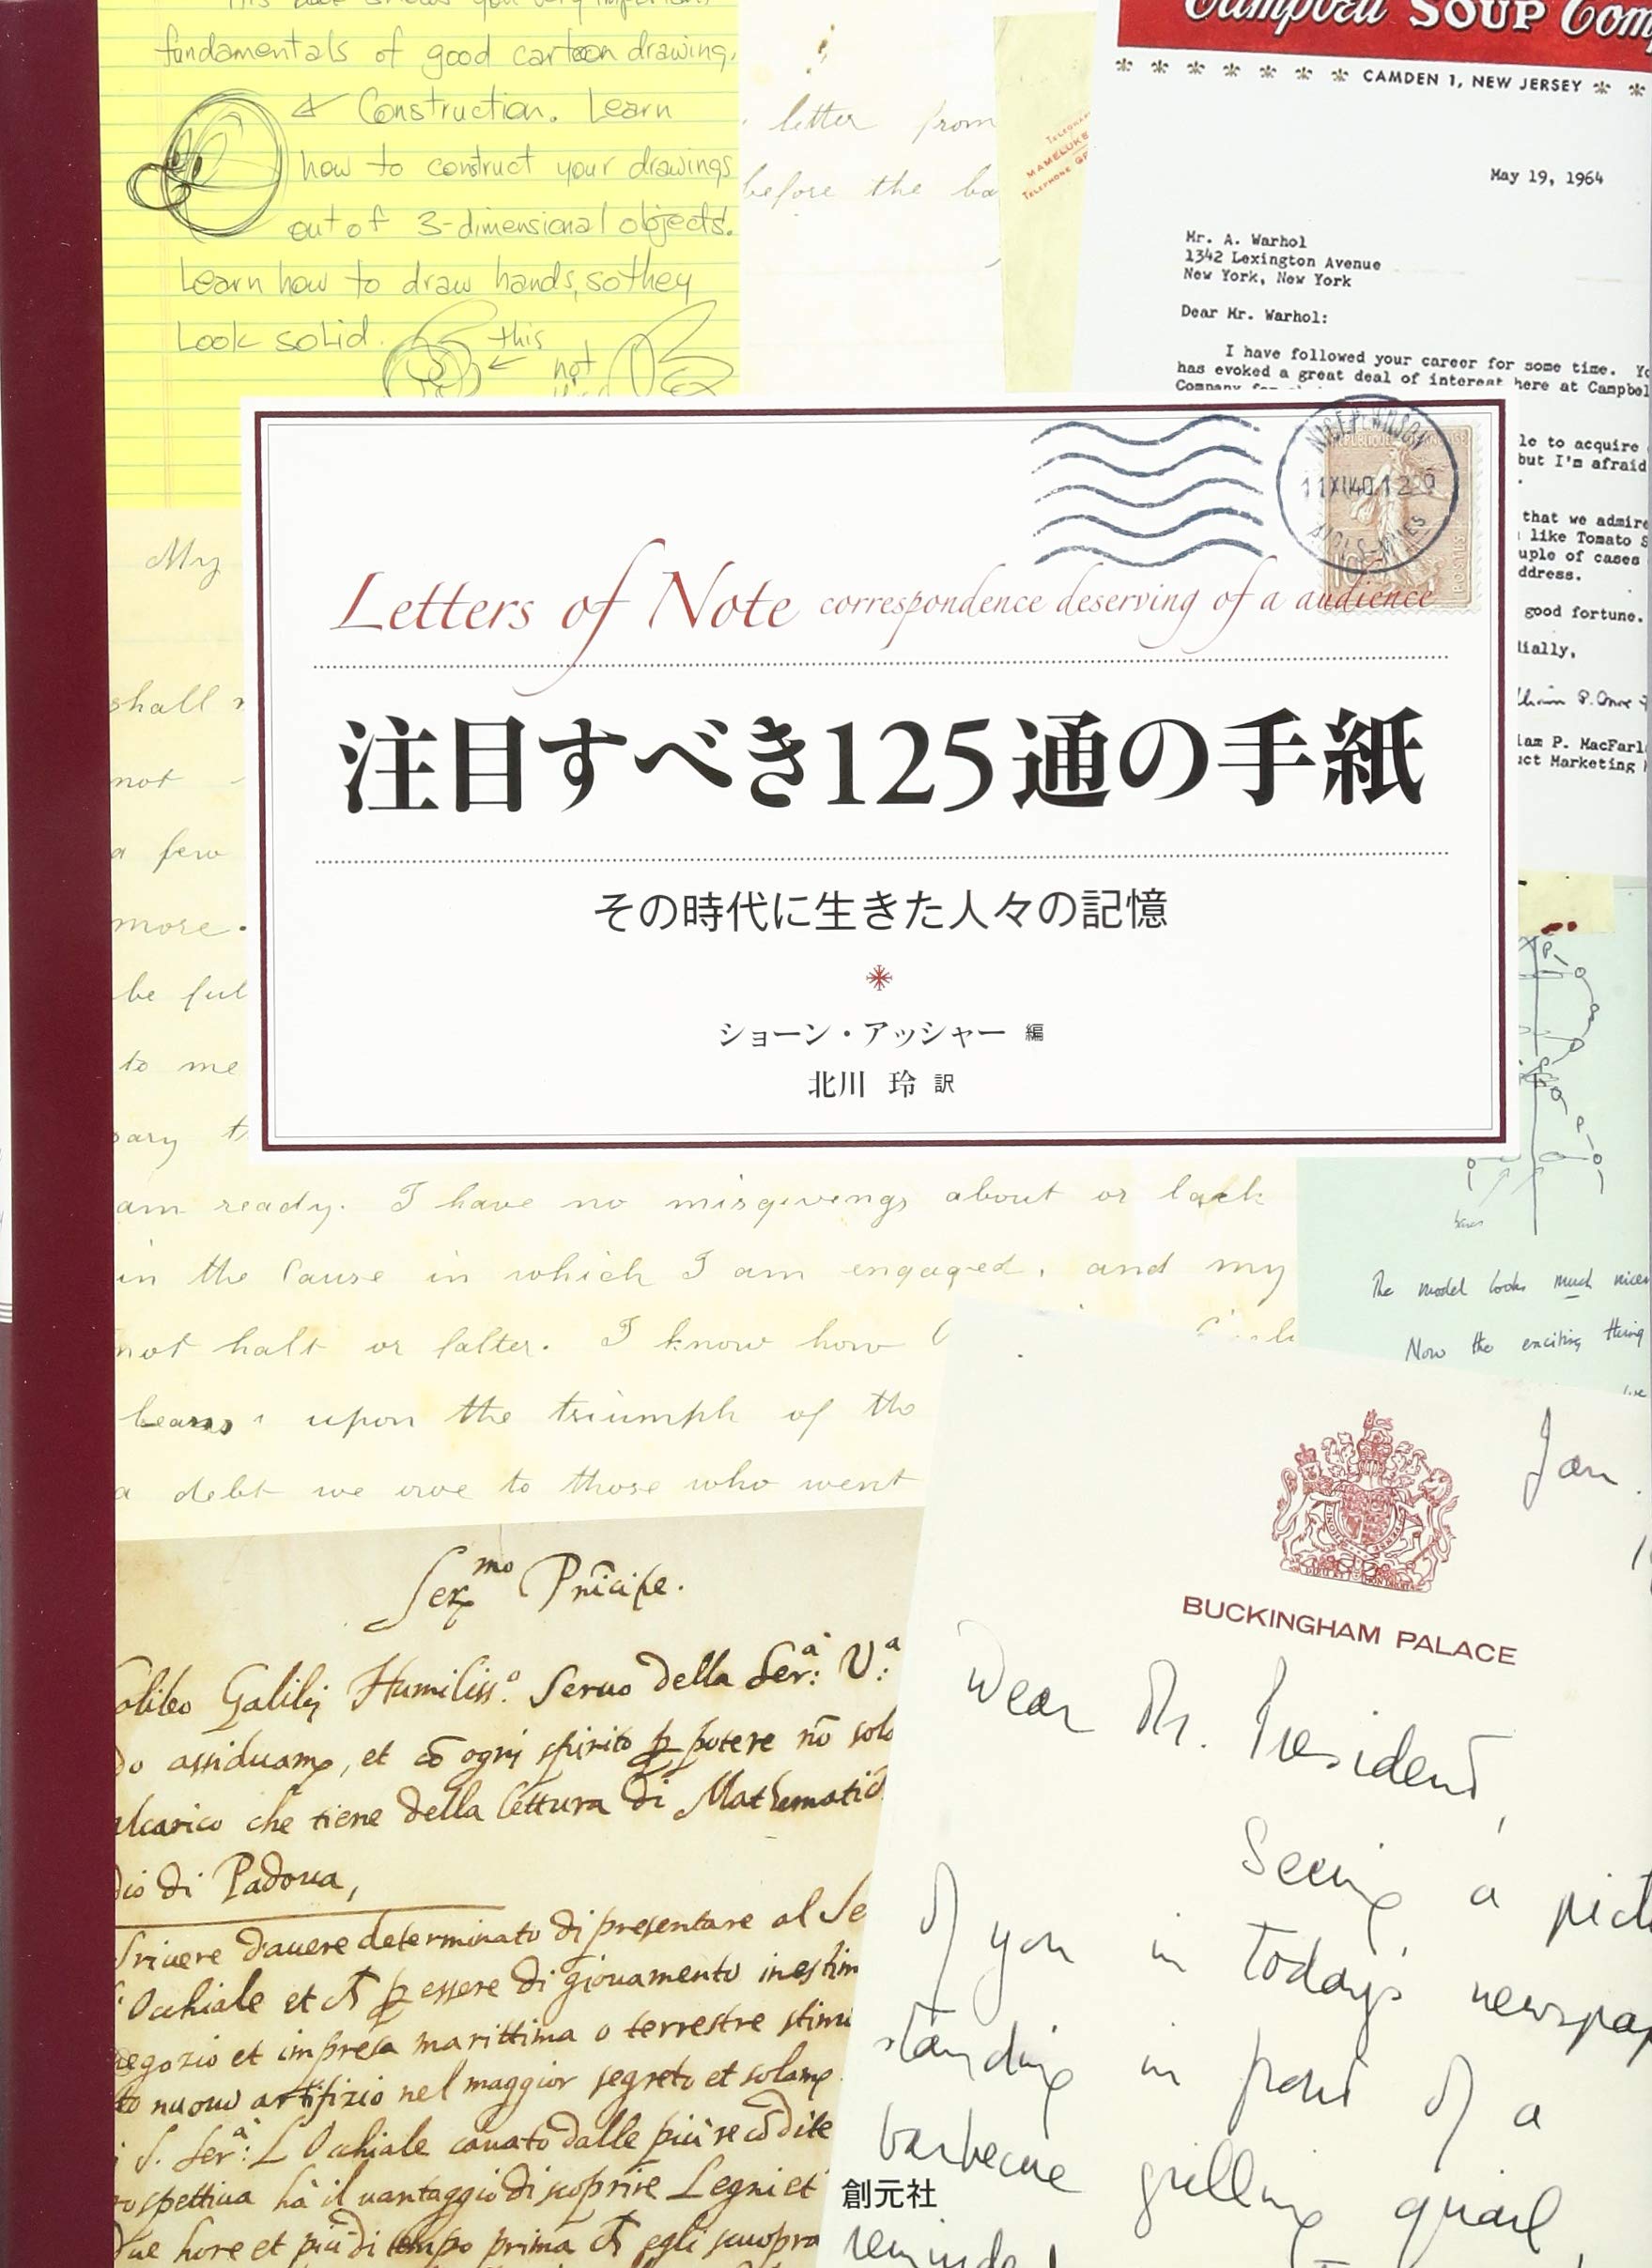 fundamentals of good cartoon drawing.
Construction. Learn
how to construct your drawings
out of 3-dimensional objects.
Learn how to draw hands, so they
Look solid.
this
not
letter from
before the
Campbell SOUP Com
CAMDEN 1, NEW JERSEY
May 19, 1964
Mr. A. Warhol
1342 Lexington Avenue
New York, New York
Dear Mr. Warhol:
I have followed your career for some time. Yo
has evoked a great deal of interest here at Campbel
Company
le to acquire
but I'm afraid
that we admire
like Tomato S
uple of cases
ddress.
good fortune.
dially,
iam P. MacFarl
uct Marketing
Letters of Note correspondence deserving of a audience
注目すべき125通の手紙
その時代に生きた人々の記憶
ショーン・アッシャー 編
北川 玲 訳
My
shall
not
a few
more.
be ful
to me
am ready. I have no misgivings about or lack
in the Cause in which I am engaged, and my
not halt or falter. I know how
leans upon the triumph of the
a debt we owe to those who went
The model looks much nicer
Now the exciting thing
Jan.
BUCKINGHAM PALACE
Dear Mr. President,
Seeing a pict
of you in today's newspap
standing in front of a
barbecue grilling quail
remind
Galileo Galilej Humiliss.º Seruo della Ser.ª V.ª
assiduam, et cō ogni spirito potere nō solo
che tiene della lettura di Mathematic
dio di Padoua,
Scriuere d'auere determinato di presentare al Se
Occhiale et essere di giouamento inestim
negozio et impresa marittima o terrestre stima
nuouo artifizio nel maggior segreto et solam
L'Occhiale cauato dalle più recōdite
prospettiua hà il uantaggio di scoprire Legni et
due hore et più di tempo prima egli scuopra
創元社